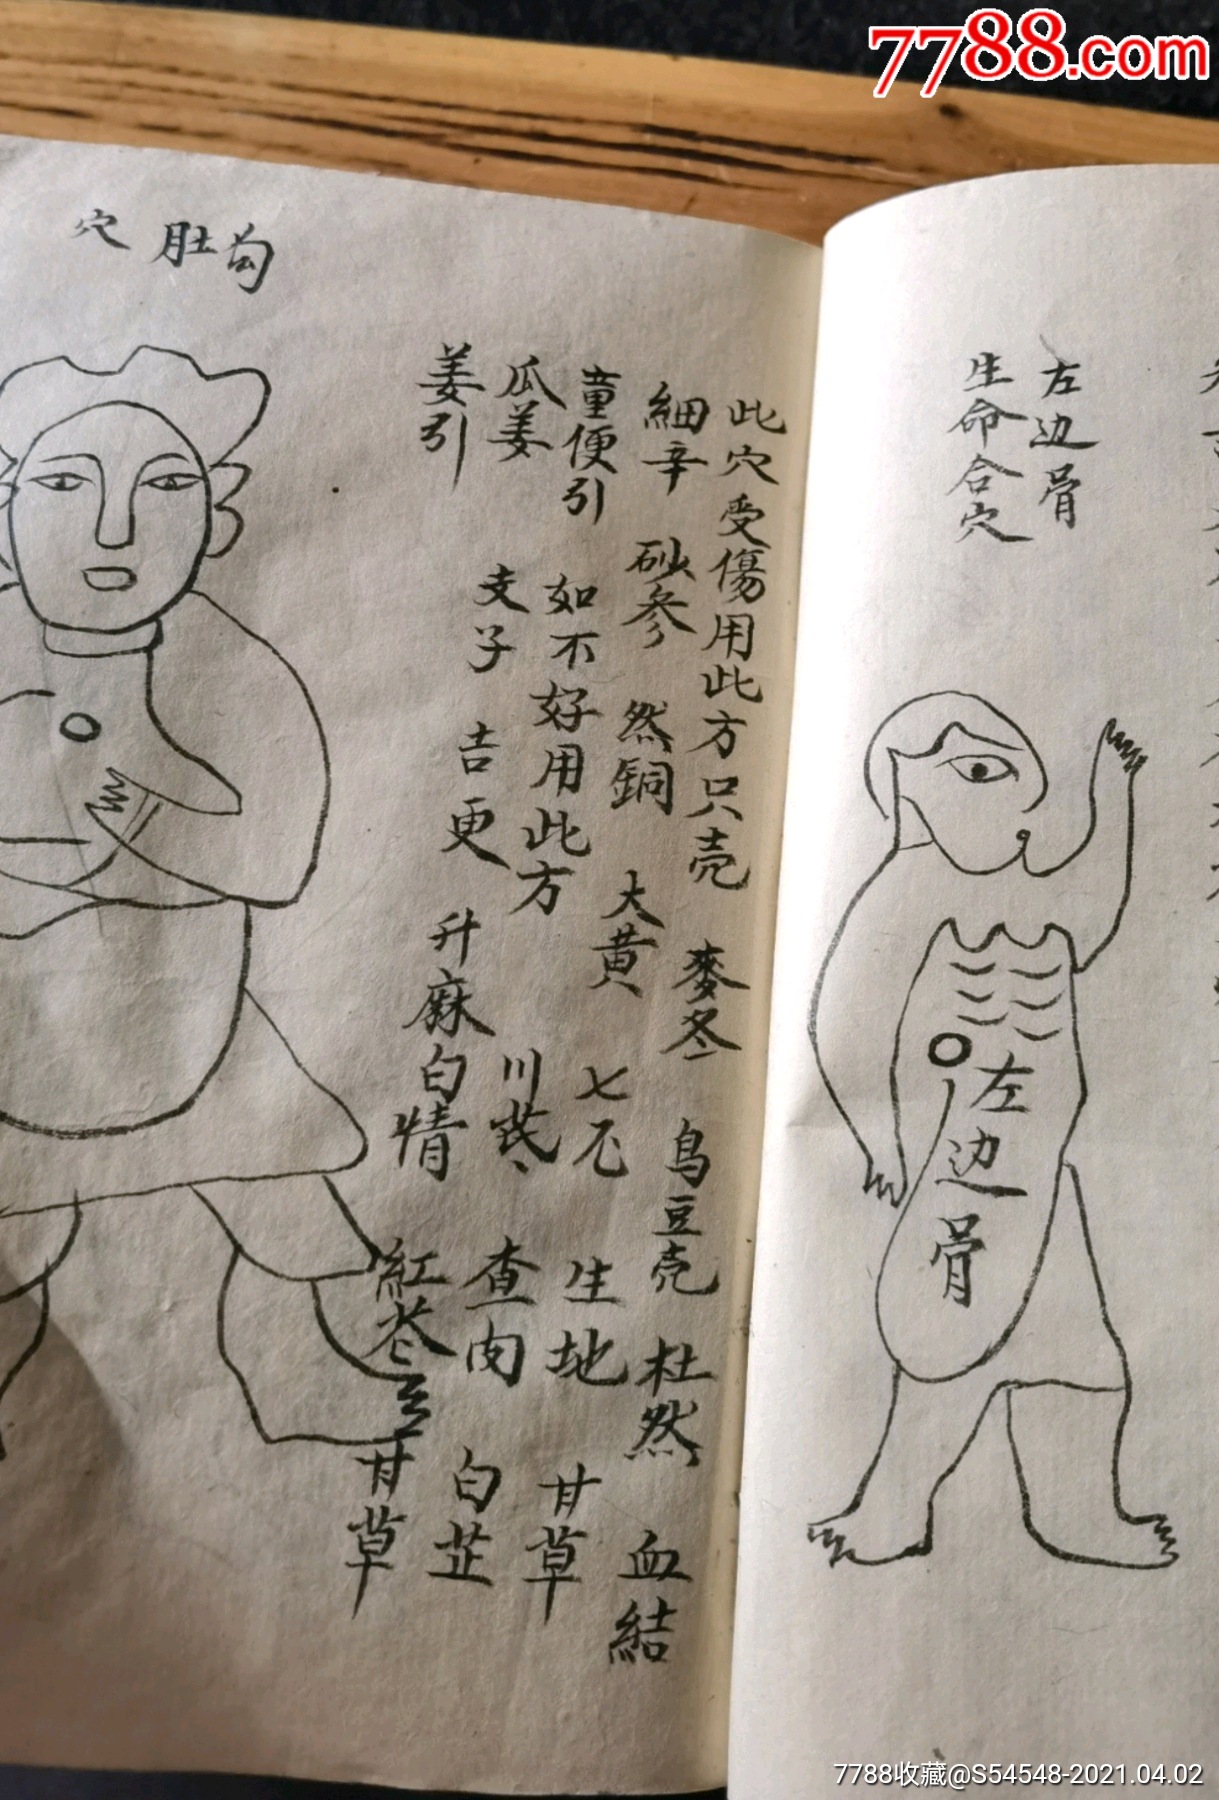 7788.com
左边骨
生命合穴
左边骨
此穴受傷用此方只壳 麥冬 烏豆壳 杜然 血結
細辛 砂參 然銅 大黃 七厘 生地 甘草
童便引 如不好用此方 川芎 查肉 白芷
瓜姜 支子 吉更 升麻 白情 紅花 甘草
姜引
勾肚穴
7788收藏@S54548-2021.04.02